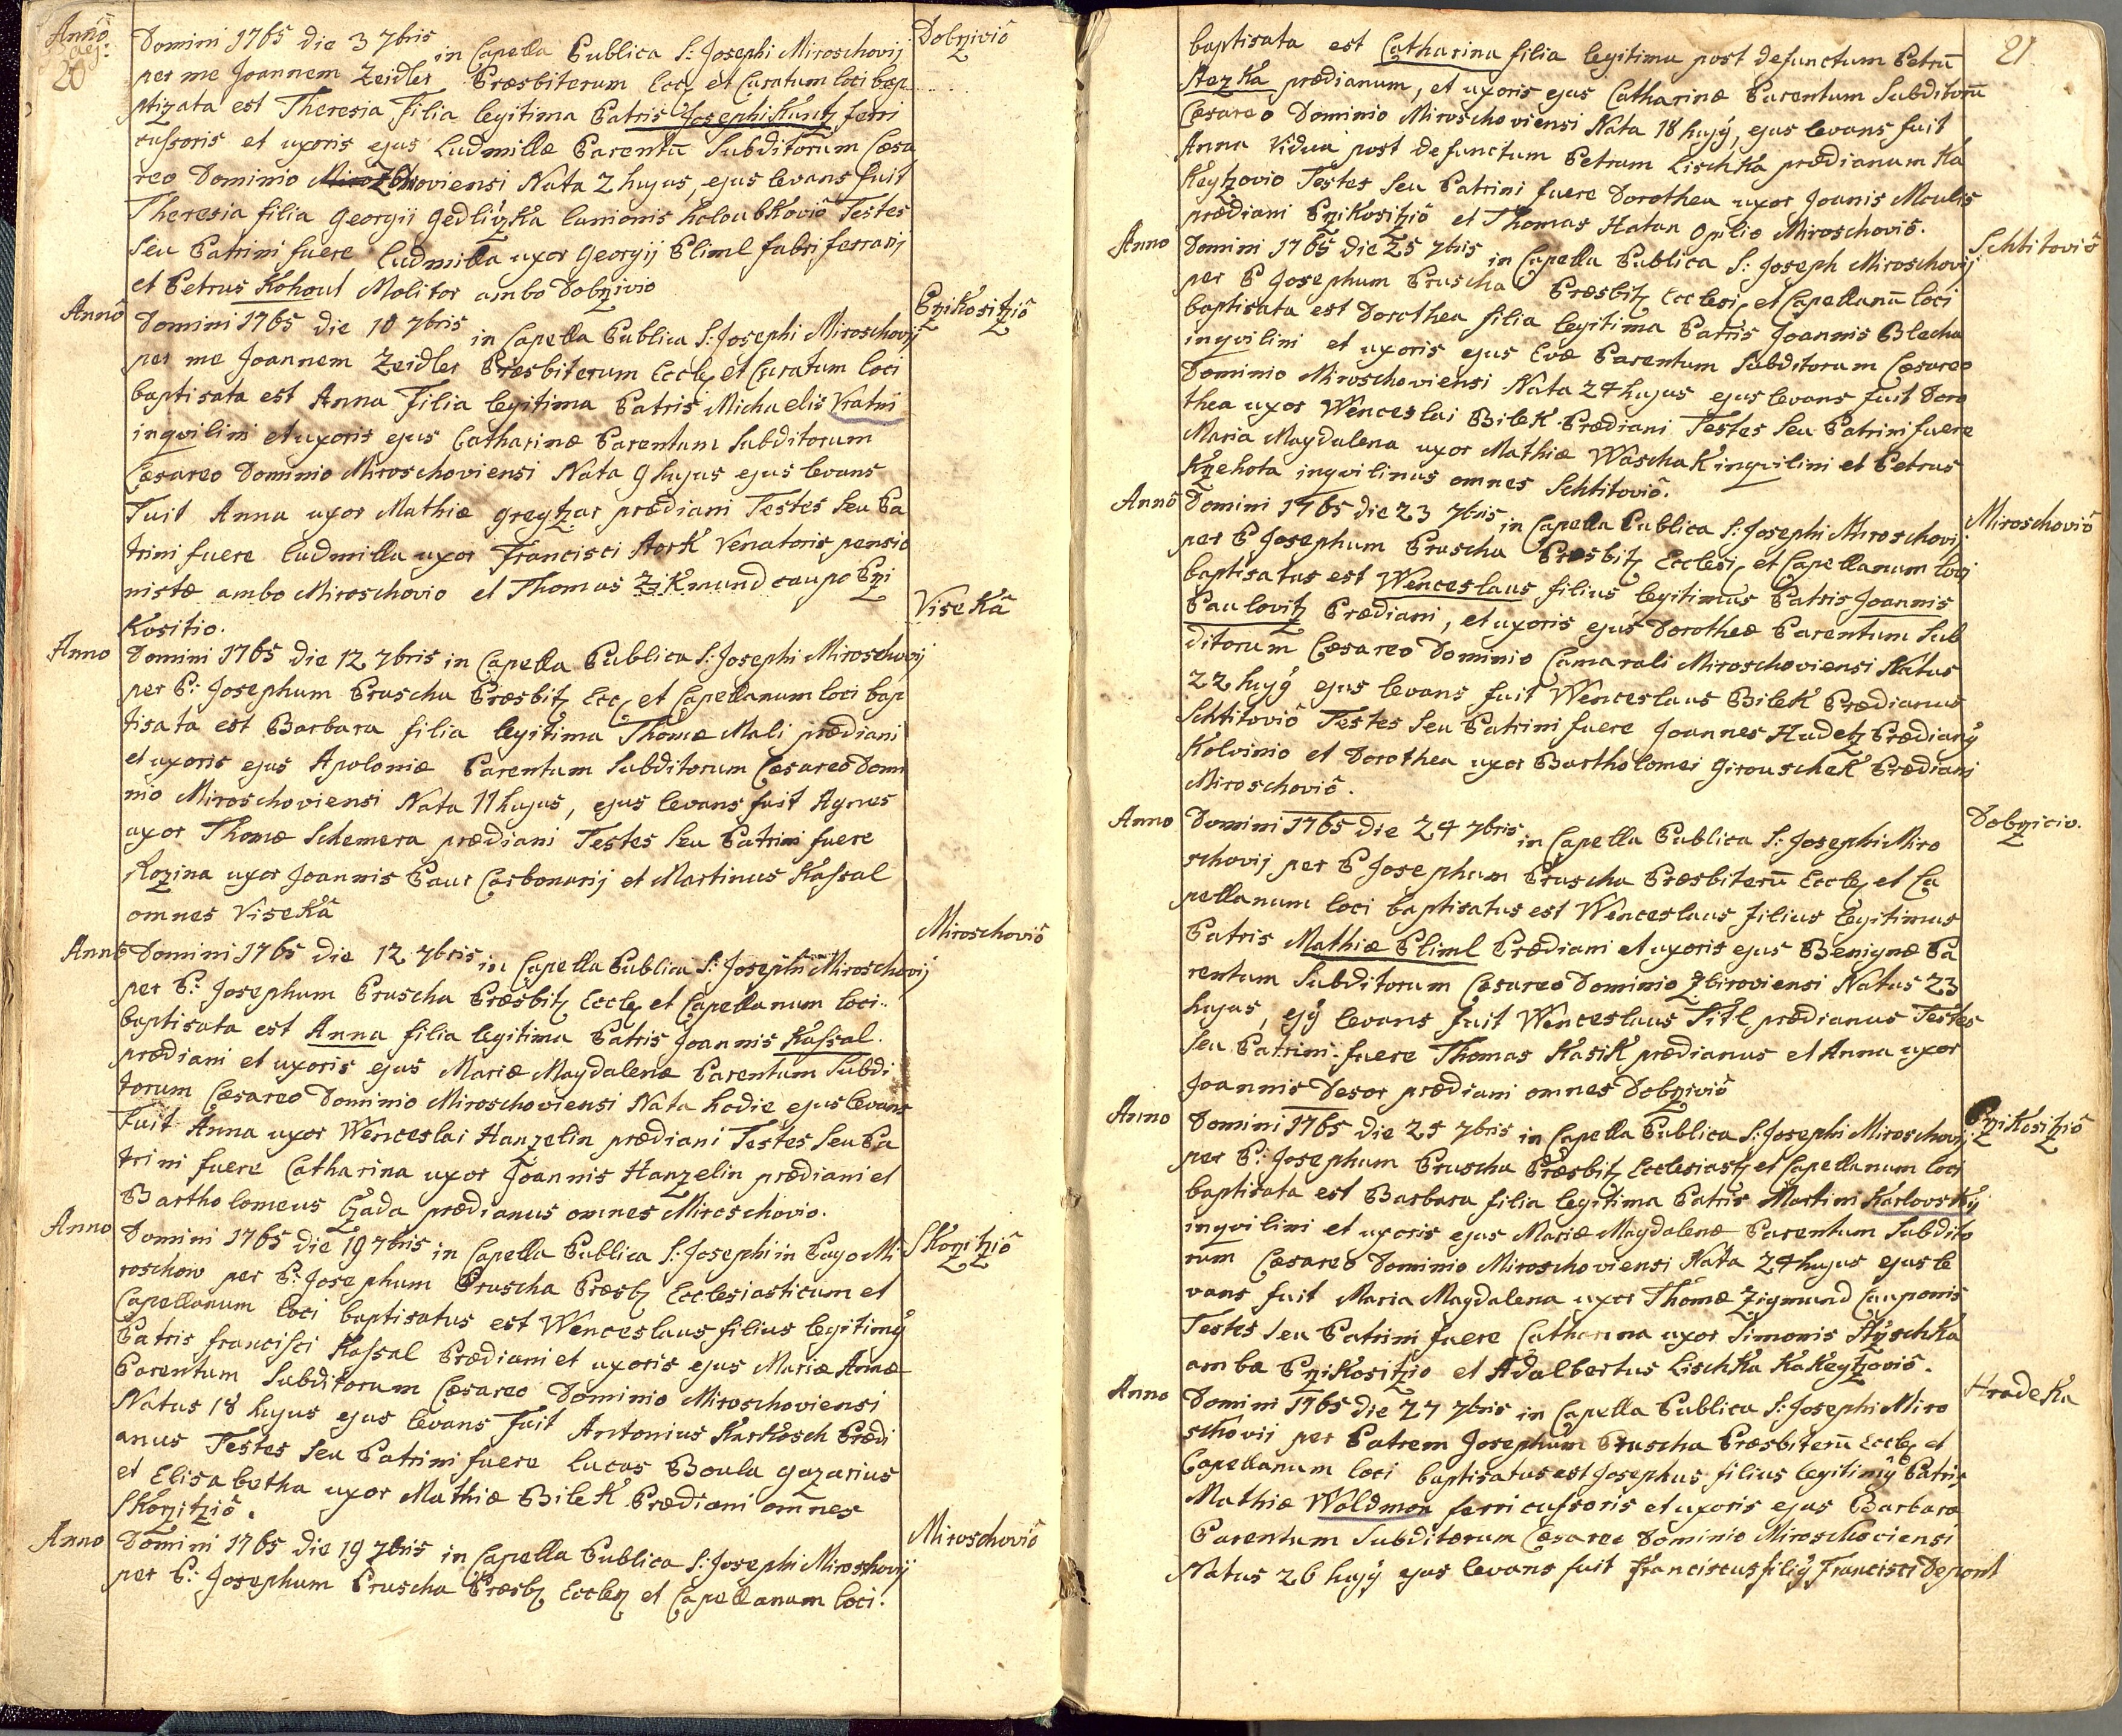 Anno
Pag:
20
Domini 1765 die 3 7bris in Capella Publica S: Josephi Miroschovij
Dobrzivio
per me Joannem Zeidler Præsbiterum Eccl et Curatum loci bap
ptizata est Theresia Filia legitima Patris Josephi Kuntz ferri
cussoris et uxoris ejus Ludmillæ Parentū Subditorum Cæsa
reo Dominio Zbiroviensi Nata 2 hujus, ejus levans fuit
Theresia filia Georgij Gedliczka lanionis holoubkovio Testes
Seu Patrini fuere Ludmilla uxor Georgij Pliml fabri ferrarij
et Petrus Kohout Molitor ambo Dobrzivio
Anno
Domini 1765 die 10 7bris in Capella Publica S: Josephi Miroschovij
Przikositzio
per me Joannem Zeidler Præsbiterum Eccle et Curatum loci
baptisata est Anna Filia legitima Patris Michaelis Vratni
inqvilini et uxoris ejus Catharinæ Parentum Subditorum
Cæsareo Dominio Miroschoviensi Nata 9 hujus ejus levans
Fuit Anna uxor Mathiæ Greytzar prædiani Testes Seu Pa
trini fuere Ludmilla uxor Francisci Stork Venatoris pensio
nistæ ambo Miroschovio et Thomas Zikmund caupo Przi
Kositio.
Anno
Domini 1765 die 12 7bris in Capella Publica S: Josephi Miroschovij
Viseka
per P: Josephum Pruscha Præsbit Ecc et Capellanum loci bap
tisata est Barbara filia legitima Thomæ Mali prædiani
et uxoris ejus Apoloniæ Parentum Subditorum Cæsareo Domi
nio Miroschoviensi Nata 11 hujus, ejus levans fuit Agnes
uxor Thomæ Schemera prædiani Testes Seu Patrini fuere
Rozina uxor Joannis Paur Carbonarij et Martinus Kassal
omnes Viseka
Anno
Domini 1765 die 12 7bris in Capella Publica S: Josephi Miroschovij
Miroschovio
per P: Josephum Pruscha Præsbit Eccle et Capellanum loci
baptisata est Anna filia legitima Patris Joannis Kassal.
prædiani et uxoris ejus Mariæ Magdalenæ Parentum Subdi
torum Cæsareo Dominio Miroschoviensi Nata hodie ejus levans
Fuit Anna uxor Wenceslai Hanzelin prædiani Testes Seu Pa
trini fuere Catharina uxor Joannis Hanzelin prædiani et
Bartholomeus Czada prædianus omnes Miroschovio.
Anno
Domini 1765 die 19 7bris in Capella Publica S: Josephi in Pago Mi
Skorzitzio
roschow per P: Josephum Pruscha Præsb Ecclesiasticum et
Capellanum loci baptisatus est Wenceslaus filius legitimꝰ
Patris Francisci Kassal Prædiani et uxoris ejus Mariæ Annæ
Parentum Subditorum Cæsareo Dominio Miroschoviensi
Natus 18 hujus ejus levans Fuit Antonius Karkosch Prædi
anus Testes Seu Patrini fuere Lucas Boula gazarius
et Elisabetha uxor Mathiæ Bilek Prædiani omnes
Skorzitzio.
Anno
Domini 1765 die 19 7bris in Capella Publica S: Josephi Miroschovij
Miroschovio
per P: Josephum Pruscha Præsb Eccle et Capellanum loci.
21
baptisata est Catharina filia legitima post defunctum Petrū
Rezka prædianum, et uxoris ejus Catharinæ Parentum Subditorū
Cæsareo Dominio Miroschoviensi Nata 18 hujꝰ, ejus levans fuit
Anna Vidua post defunctum Petrum Lischka prædianum Ka
keytzovio Testes Seu Patrini fuere Dorothea uxor Joanis Moulis
prædiani Przikositzio et Thomas Hatan Opilio Miroschovio.
Anno
Domini 1765 die 25 7bris in Capella Publica S: Joseph Miroschovij
Schtitovio
per P Josephum Pruscha Præsbit Ecclesi et Capellanū loci
baptisata est Dorothea filia legitima Patris Joannis Blecha
inqvilini et uxoris ejus Evæ Parentum Subditorum Cæsareo
Dominio Miroschoviensi Nata 24 hujus ejus levans fuit Doro
thea uxor Wenceslai Bilek Prædiani Testes Seu Patrini fuere
Maria Magdalena uxor Mathiæ Waschak inqvilini et Petrus
Krzehota inqvilinus omnes Schtitovio.
Anno
Domini 1765 die 23 7bris in Capella Publica S: Josephi Miroschovij
Miroschovio
per P Josephum Pruscha Præsbit Ecclesi et Capellanum loci
baptisatus est Wenceslaus filius legitimus Patris Joannis
Paulovitz Prædiani, et uxoris ejus Dorotheæ Parentum Sub
ditorum Cæsareo Dominio Camerali Miroschoviensi Natus
22 hujꝰ ejus levans fuit Wenceslaus Bilek Prædianus
Schtitovio Testes Seu Patrini fuere Joannes Hudetz Prædianꝰ
Kolvinio et Dorothea uxor Bartholomei Girouschek Prædiani
Miroschovio.
Anno
Domini 1765 die 24 7bris in Capella Publica S: Josephi Miro
Dobrzivio.
schovij per P Josephum Pruscha Præsbiterū Eccle et Ca
pellanum loci baptisatus est Wenceslaus filius legitimus
Patris Mathiæ Pliml Prædiani et uxoris ejus Benignæ Pa
rentum Subditorum Cæsareo Dominio Zbiroviensi Natus 23
hujus, ejꝰ levans fuit Wenceslaus Titl prædianus Testes
Seu Patrini fuere Thomas Kasik prædianus et Anna uxor
Joannis Desor prædiani omnes Dobrzivio
Anno
Domini 1765 die 25 7bris in Capella Publica S: Josephi Miroschovij
Przikositzio
per P: Josephum Pruscha Præsbit Ecclesiast et Capellanum loci
baptisata est Barbara filia legitima Patris Martini Karlovsky
inqvilini et uxoris ejus Mariæ Magdalenæ Parentum Subdito
rum Cæsareo Dominio Miroschoviensi Nata 24 hujus ejus le
vans fuit Maria Magdalena uxor Thomæ Zigmund Cauponis
Testes Seu Patrini fuere Catharina uxor Simonis Hyschka
ambæ Przikositzio et Adalbertus Lischka Kakeytzovio.
Anno
Domini 1765 die 27 7bris in Capella Publica S: Josephi Miro
Hradeka
schovij per Patrem Josephum Pruscha Præsbiterū Eccle et
Capellanum loci baptisatus est Josephus filius legitimꝰ Patris
Mathiæ Waldmon ferri cussoris et uxoris ejus Barbaræ
Parentum Subditorum Cæsareo Dominio Miroschoviensi
Natus 26 hujꝰ ejus levans fuit Franciscus filiꝰ Francisci Depont